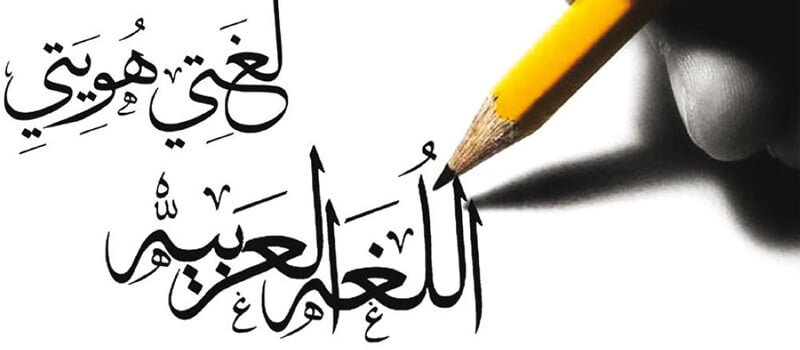 لغَتِي هُوِيَتِي
اللُغَة العَربية